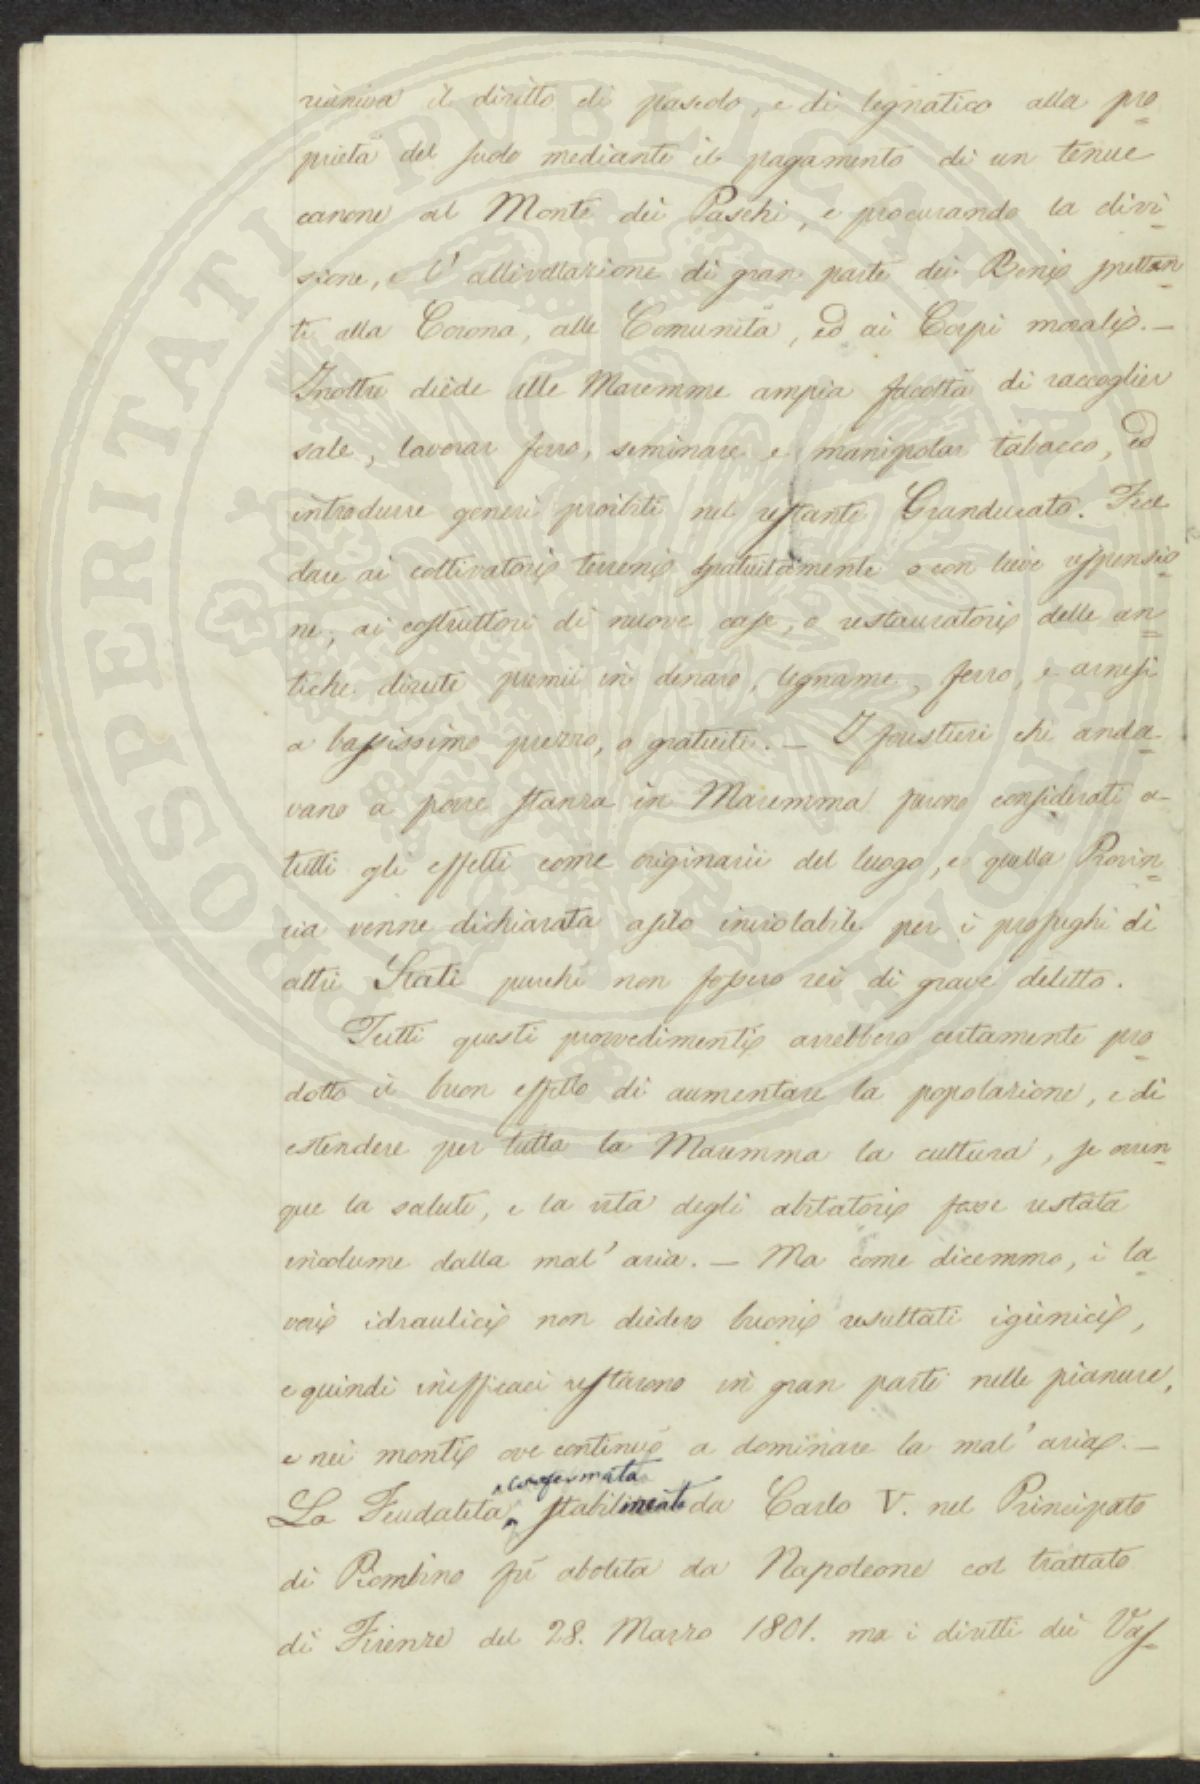 riuniva il diritto di pascolo, e di legnatico alla pro
prietà del suolo mediante il pagamento di un tenue
canone al Monte dei Paschi, e procurando la divi
sione, e l'allivellazione di gran parte dei Beni spettan
ti alla Corona, alle Comunità, ed ai Corpi morali. —
Inoltre diède alle Maremme ampia facoltà di raccoglier
sale, lavorar ferro, seminare e manipolar tabacco, ed
introdurre generi proibiti nel restante Granducato. Fece
dare ai coltivatori terreni gratuitamente o con lieve responsio
ne, ai costruttori di nuove case, o restauratori delle an
tiche dirute premii in denaro, legname, ferro, e arnesi
a bassissimo prezzo, o gratuiti. — I forestieri che anda
vano a porre stanza in Maremma furono considerati a
tutti gli effetti come originarii del luogo, e quella Provin
cia venne dichiarata asilo inviolabile per i profughi di
altri Stati purchè non fossero rei di grave delitto.
Tutti questi provvedimenti avrebbero certamente pro
dotto il buon effetto di aumentare la popolazione, e di
estendere per tutta la Maremma la cultura, se ovun
que la salute, e la vita degli abitatori fosse restata
incolume dalla mal'aria. — Ma come dicemmo, i la
vori idraulici non diedero buoni resultati igienici,
e quindi inefficaci restarono in gran parte nelle pianure,
e nei monti ove continuò a dominare la mal'aria. —
confermata
La Feudalità stabilmente da Carlo V. nel Principato
di Piombino fù abolita da Napoleone col trattato
di Firenze del 28. Marzo 1801. ma i diritti dei Vas
PROSPERITATI PUBLICAE